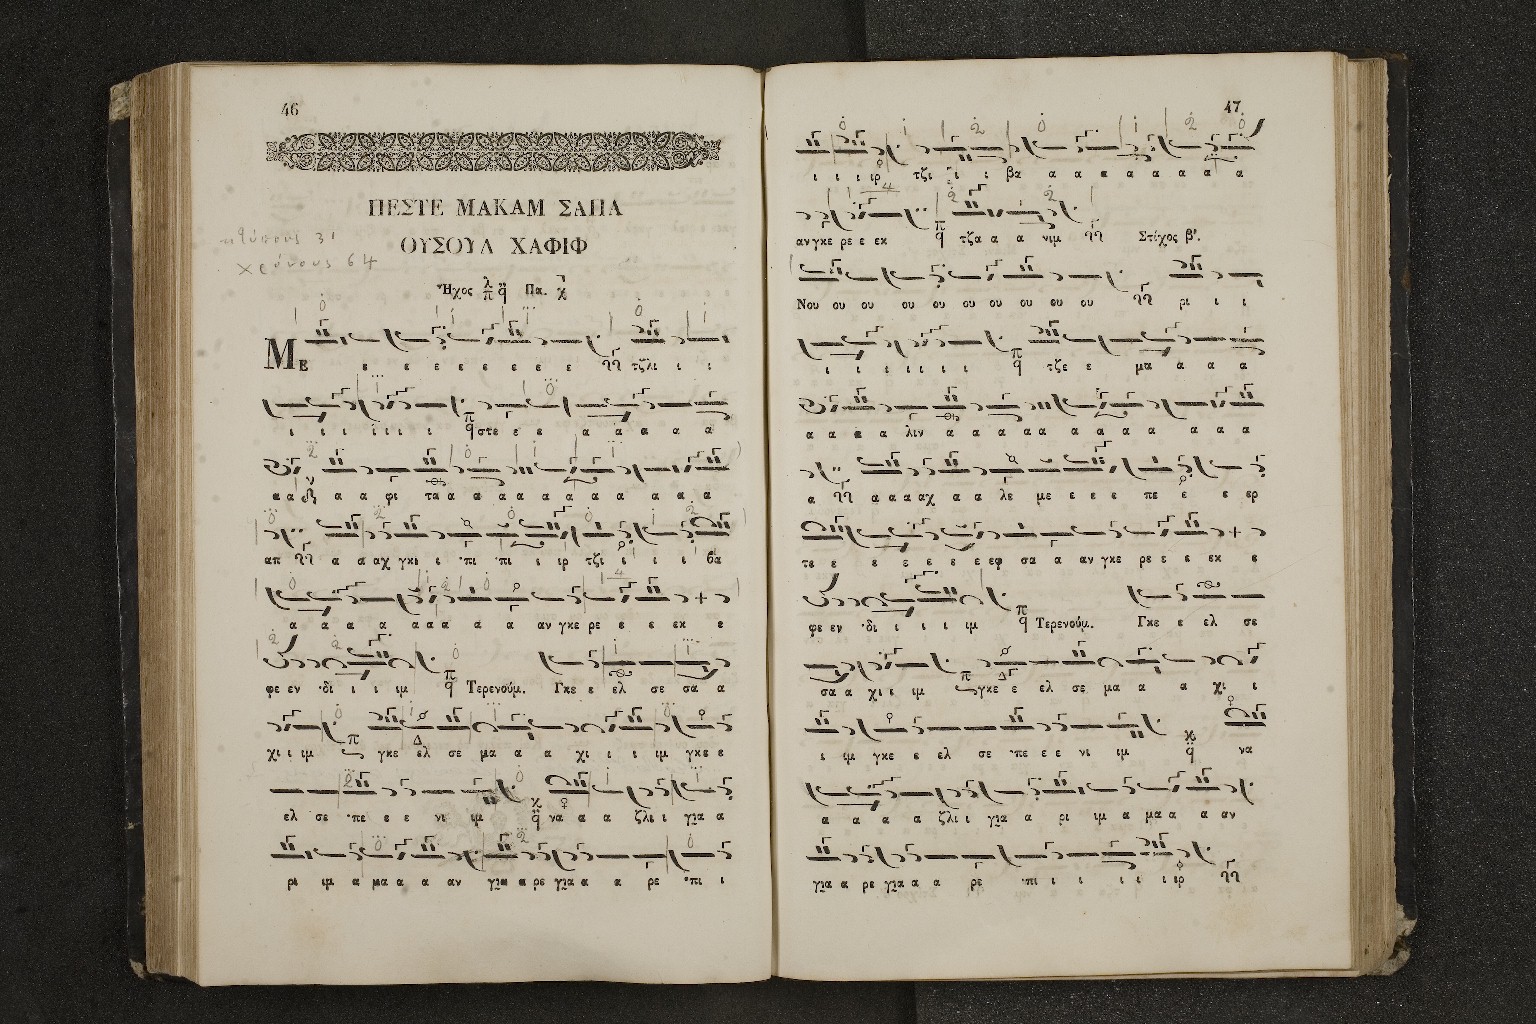 46
ΠΕΣΤΕ ΜΑΚΑΜ ΣΑΠΑ
ΟΥΣΟΥΛ ΧΑΦΙΦ
χρόνους 64
Ἦχος Πα.
Με ε ε ε ε ε ε ε ε τζλι ι ι
ι ι ι ι ι ι ι στε ε ε α α α α α
α α α α φι τα α α α α α α α α α α α
απ α α αχ γκι ι ·πι ·πι ι ιρ τζι ι ι ι βα
α α α α α α α α α αν γκε ρε ε ε εκ ε
φε εν ·δι ι ι ιμ Τερενούμ. Γκε ε ελ σε σα α
χι ι ιμ γκε ελ σε μα α α χι ι ι ιμ γκε ε
ελ σε ·πε ε ε νι ιμ να α α ζλι ι για α
ρι ιμ α μα α α αν για α ρε για α α ρε ·πι ι
47
ι ι ι ιρ τζι ι ι βα α α α α α α α α
αν γκε ρε ε εκ τζα α α νιμ Στίχος β'.
Νου ου ου ου ου ου ου ου ου ου ρι ι ι
ι ι ι ι ι ι ι τζε ε μα α α α
α α α α λιν α α α α α α α α α α α α
α α α α αχ α α λε με ε ε ε πε ε ε ερ
τε ε ε ε ε ε ε εφ σα α αν γκε ρε ε ε εκ ε
φε εν ·δι ι ι ι ιμ Τερενούμ. Γκε ε ελ σε
σα α χι ι ιμ γκε ε ελ σε μα α α χι ι
ι ιμ γκε ε ελ σε ·πε ε ε νι ιμ να
α α α α ζλι ι για α ρι ιμ α μα α α αν
για α ρε για α α ρε ·πι ι ι ι ι ι ιρ